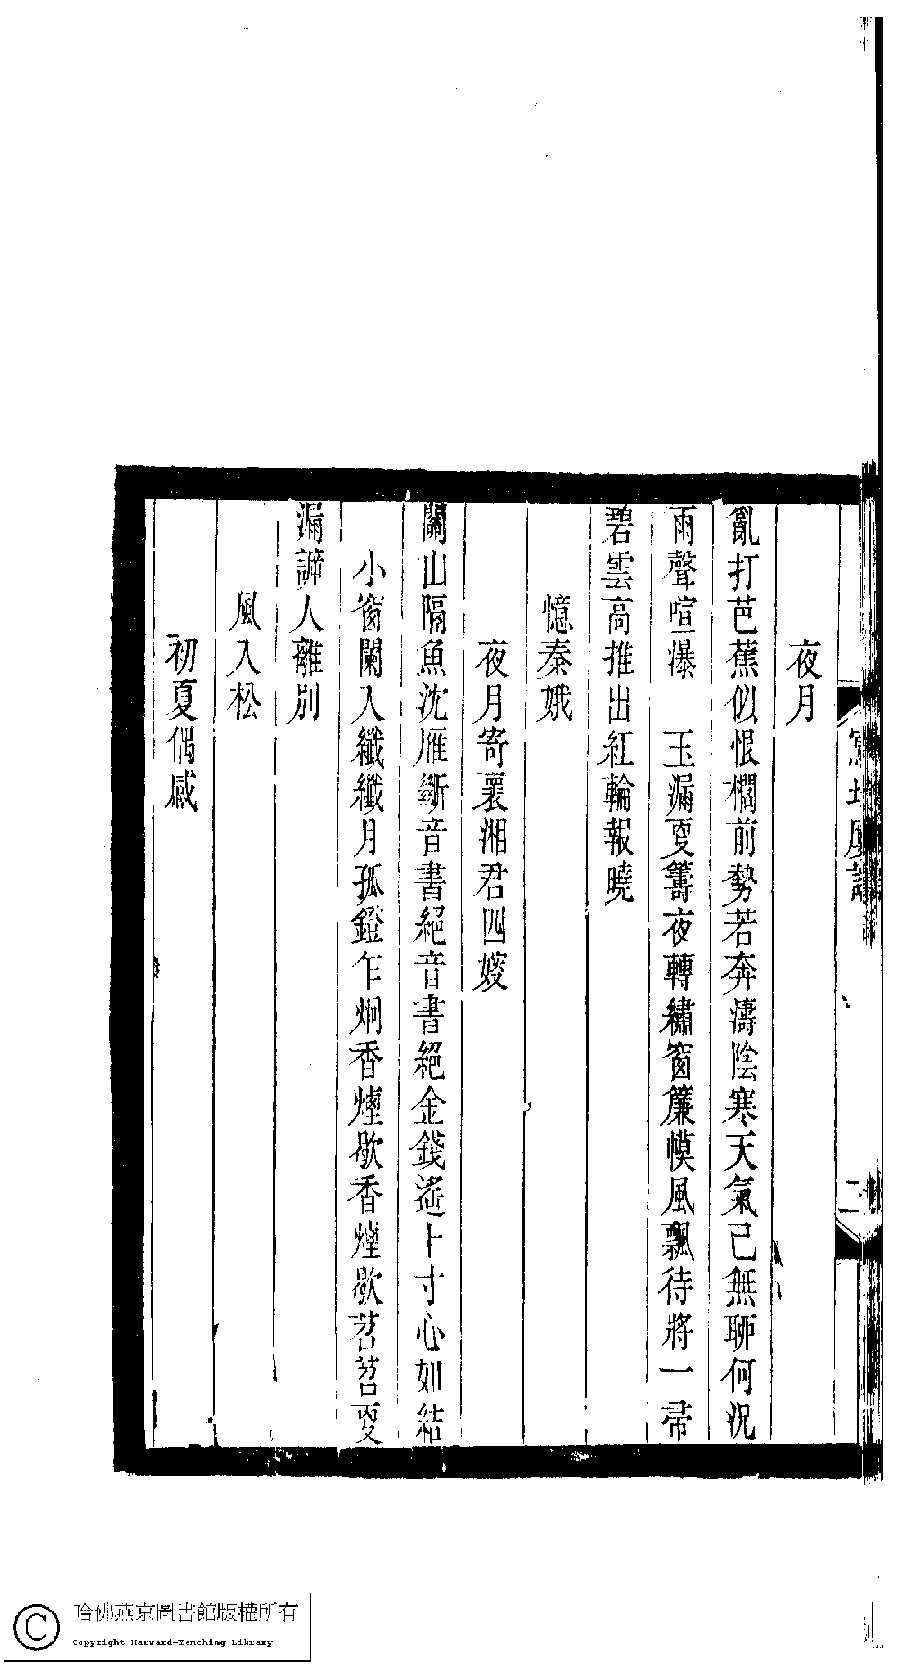 夜月
亂打芭蕉似恨櫩前勢若奔濤陰寒天氣已無聊何況
雨聲喧瀑　玉漏㪅籌夜轉繡窗簾幙風飄待將一帚
碧雲高推出紅輪報曉
憶秦娥
夜月寄襄湘君四嫂
關山隔魚沈雁斷音書絕音書絕金錢遙卜寸心如結
小窗闌入纖纖月孤鐙乍炯香煙歇香煙歇苕苕㪅
漏諦人離別
風入松
初夏偶感
二
哈佛燕京圖書館版權所有
Copyright Harvard-Yenching Library